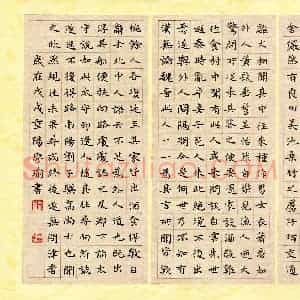 雞犬相聞其中往来種作男女衣着悉如
外人黄髮垂髫並怡然自樂見漁人乃大
驚問所從来具答之便要還家設酒殺雞
作食村中聞有此人咸来問訊自云先世
避秦時亂率妻子邑人来此絕境不復出
焉遂與外人間隔問今是何世乃不知有
漢無論魏晉此人一一為具言所聞皆
惋餘人各復延至其家皆出酒食停數日
辭去此中人語云不足為外人道也既出
得其船便扶向路處處誌之及郡下詣太
守說如此太守即遣人隨其往尋向所誌
遂迷不復得路南陽劉驎之高尚士也聞
之欣然規往未果尋病終後遂無問津者
歲在戊戌重陽書